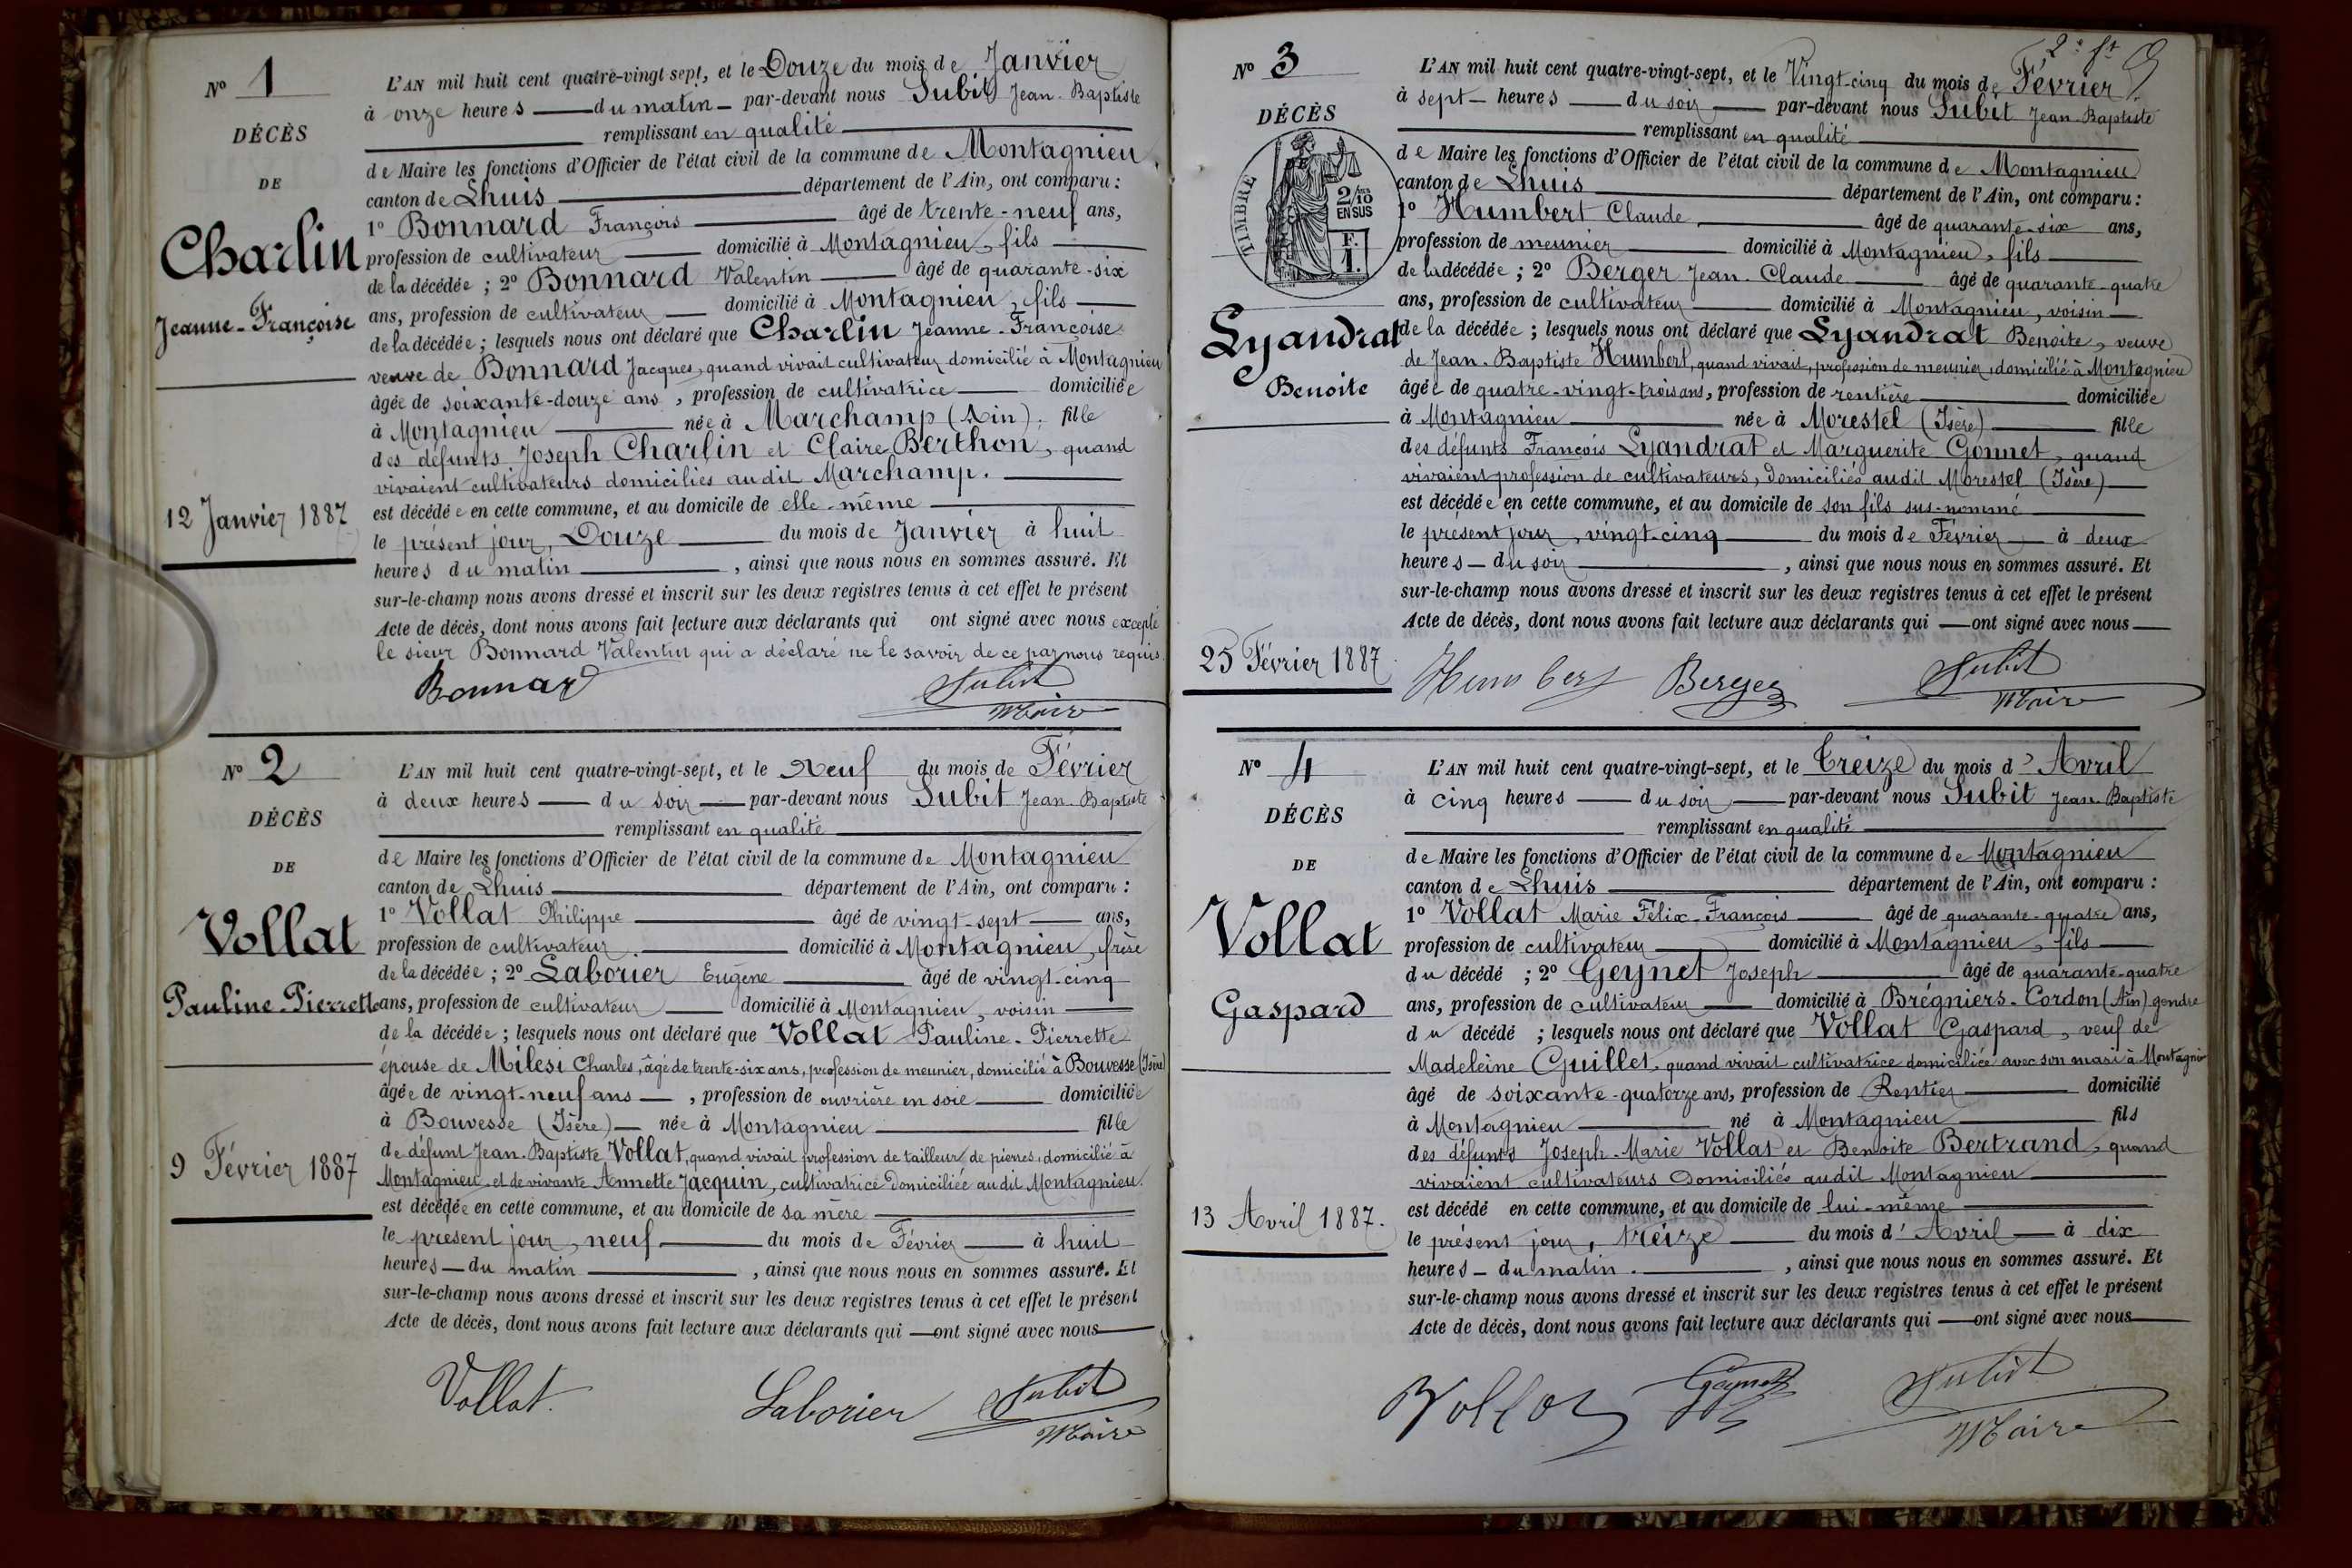 N° 1
DÉCÈS
DE
Charlin
Jeanne-Françoise
12 Janvier 1887
L'AN mil huit cent quatre-vingt sept, et le Douze du mois de Janvier
à onze heures — du matin — par-devant nous Subit Jean-Baptiste
remplissant en qualité
de Maire les fonctions d'Officier de l'état civil de la commune de Montagnieu,
canton de Lhuis — département de l'Ain, ont comparu :
1° Bonnard François — âgé de trente-neuf ans,
profession de cultivateur — domicilié à Montagnieu, fils —
de la décédée ; 2° Bonnard Valentin — âgé de quarante-six
ans, profession de cultivateur — domicilié à Montagnieu, fils —
de la décédée ; lesquels nous ont déclaré que Charlin Jeanne-Françoise
veuve de Bonnard Jacques, quand vivait cultivateur domicilié à Montagnieu
âgée de soixante-douze ans, profession de cultivatrice — domiciliée
à Montagnieu — née à Marchamp (Ain), fille
des défunts Joseph Charlin et Claire Berthon, quand
vivaient cultivateurs domiciliés audit Marchamp. —
est décédée en cette commune, et au domicile de elle-même —
le présent jour, Douze — du mois de Janvier à huit
heures du matin — , ainsi que nous nous en sommes assuré. Et
sur-le-champ nous avons dressé et inscrit sur les deux registres tenus à cet effet le présent
Acte de décès, dont nous avons fait lecture aux déclarants qui ont signé avec nous excepté
le sieur Bonnard Valentin qui a déclaré ne le savoir de ce par nous requis.
Bonnard Subit
Maire
N° 2
DÉCÈS
DE
Vollat
Pauline-Pierrette
9 Février 1887
L'AN mil huit cent quatre-vingt-sept, et le Neuf du mois de Février
à deux heures — du soir — par-devant nous Subit Jean-Baptiste
remplissant en qualité
de Maire les fonctions d'Officier de l'état civil de la commune de Montagnieu
canton de Lhuis — département de l'Ain, ont comparu :
1° Vollat Philippe — âgé de vingt-sept — ans,
profession de cultivateur — domicilié à Montagnieu, frère
de la décédée ; 2° Laborier Eugène — âgé de vingt-cinq
ans, profession de cultivateur — domicilié à Montagnieu, voisin —
de la décédée ; lesquels nous ont déclaré que Vollat Pauline-Pierrette
épouse de Milesi Charles, âgé de trente-six ans, profession de meunier, domicilié à Bouvesse (Isère)
âgée de vingt-neuf ans — , profession de ouvrière en soie — domiciliée
à Bouvesse (Isère) — née à Montagnieu — fille
de défunt Jean-Baptiste Vollat, quand vivait profession de tailleur de pierres, domicilié à
Montagnieu et de vivante Annette Jacquin, cultivatrice domiciliée audit Montagnieu.
est décédée en cette commune, et au domicile de sa mère —
le présent jour, neuf — du mois de Février — à huit
heures — du matin — , ainsi que nous nous en sommes assuré. Et
sur-le-champ nous avons dressé et inscrit sur les deux registres tenus à cet effet le présent
Acte de décès, dont nous avons fait lecture aux déclarants qui — ont signé avec nous —
Vollat. Laborier Subit
Maire
2e ft
N° 3
DÉCÈS
TIMBRE
2/10
EN SUS
F.
1.
Lyandrat
Benoite
25 Février 1887
L'AN mil huit cent quatre-vingt-sept, et le Vingt-cinq du mois de Février
à sept — heures — du soir — par-devant nous Subit Jean-Baptiste
remplissant en qualité
de Maire les fonctions d'Officier de l'état civil de la commune de Montagnieu
canton de Lhuis — département de l'Ain, ont comparu :
1° Humbert Claude — âgé de quarante-six ans,
profession de meunier — domicilié à Montagnieu, fils —
de la décédée ; 2° Berger Jean-Claude — âgé de quarante-quatre
ans, profession de cultivateur — domicilié à Montagnieu, voisin —
de la décédée ; lesquels nous ont déclaré que Lyandrat Benoite, veuve
de Jean-Baptiste Humbert, quand vivait, profession de meunier, domicilié à Montagnieu
âgée de quatre-vingt-trois ans, profession de rentière — domiciliée
à Montagnieu — née à Morestel (Isère) — fille
des défunts François Lyandrat et Marguerite Gonnet, quand
vivaient profession de cultivateurs, domiciliés audit Morestel (Isère) —
est décédée en cette commune, et au domicile de son fils sus-nommé
le présent jour, vingt-cinq — du mois de Février — à deux
heures — du soir — , ainsi que nous nous en sommes assuré. Et
sur-le-champ nous avons dressé et inscrit sur les deux registres tenus à cet effet le présent
Acte de décès, dont nous avons fait lecture aux déclarants qui — ont signé avec nous —
Humbert Berger Subit
Maire
N° 4
DÉCÈS
DE
Vollat
Gaspard
13 Avril 1887.
L'AN mil huit cent quatre-vingt-sept, et le Treize du mois d'Avril
à cinq heures — du soir — par-devant nous Subit Jean-Baptiste
remplissant en qualité
de Maire les fonctions d'Officier de l'état civil de la commune de Montagnieu
canton de Lhuis — département de l'Ain, ont comparu :
1° Vollat Marie Félix-François — âgé de quarante-quatre ans,
profession de cultivateur — domicilié à Montagnieu, fils —
du décédé ; 2° Geynet Joseph — âgé de quarante-quatre
ans, profession de cultivateur — domicilié à Brégniers-Cordon (Ain) gendre
du décédé ; lesquels nous ont déclaré que Vollat Gaspard, veuf de
Madeleine Guillet, quand vivait cultivatrice domiciliée avec son mari à Montagnieu
âgé de soixante-quatorze ans, profession de Rentier — domicilié
à Montagnieu — né à Montagnieu — fils
des défunts Joseph-Marie Vollat et Benoite Bertrand, quand
vivaient cultivateurs domiciliés audit Montagnieu —
est décédé en cette commune, et au domicile de lui-même —
le présent jour, treize — du mois d'Avril — à dix
heures — du matin. — , ainsi que nous nous en sommes assuré. Et
sur-le-champ nous avons dressé et inscrit sur les deux registres tenus à cet effet le présent
Acte de décès, dont nous avons fait lecture aux déclarants qui — ont signé avec nous —
Vollat Geynet Subit
Maire